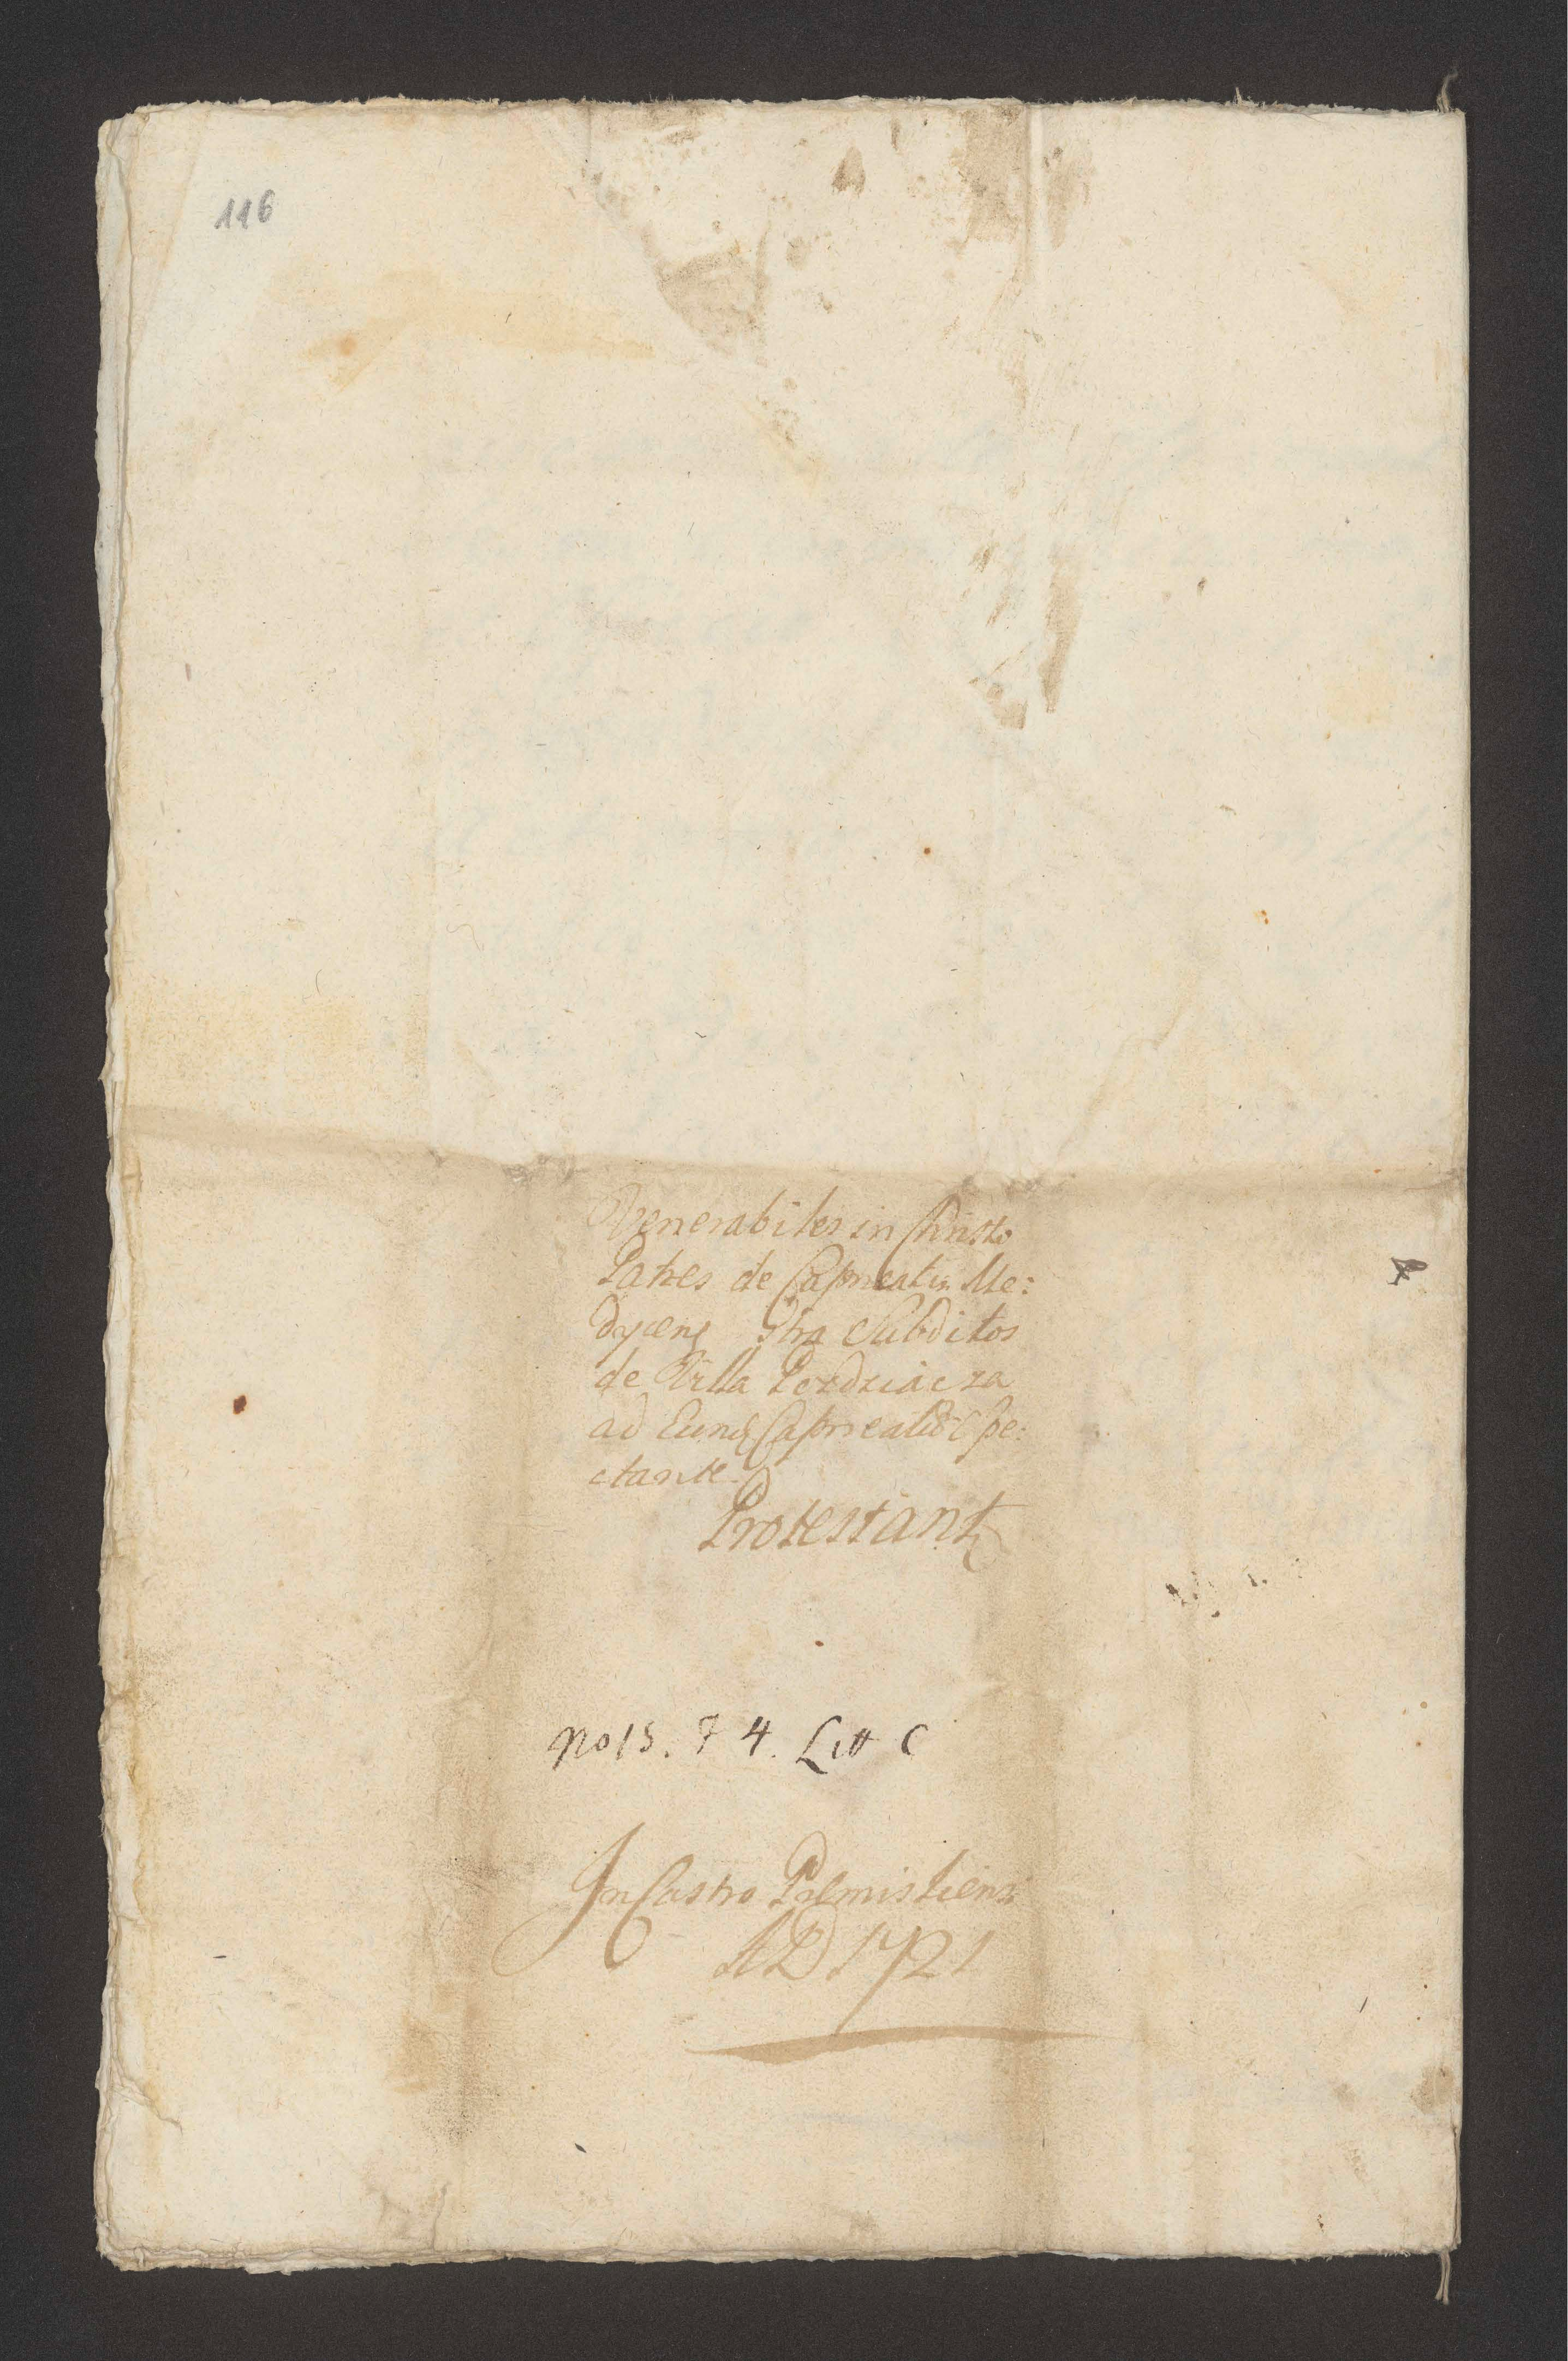 116
Venerabiles in Christo
Patres de Capneatu Me:
dycens gtra Subditos
de Villa Pozdziacza
ad Eund Capneatū Spe:
ctante
Protestant
No 15. F 4. Litt C
In Castro Præmisliensi
AD 1721